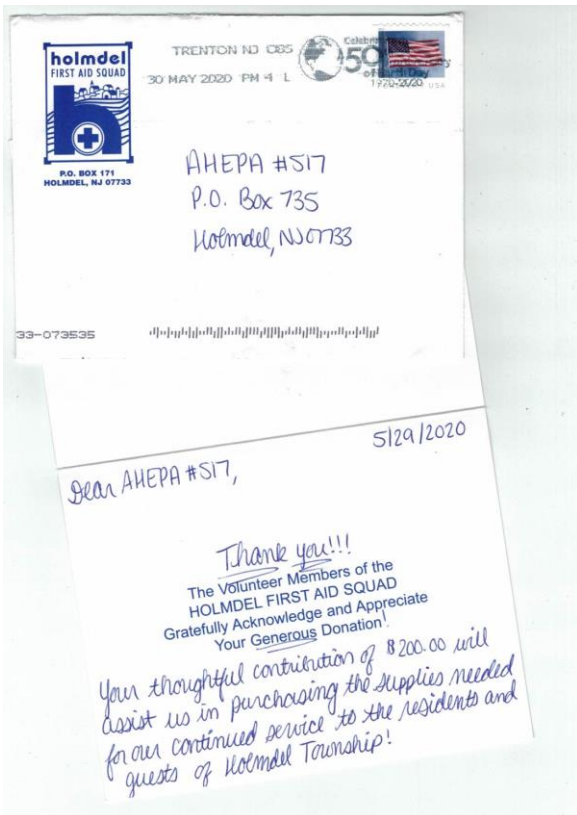 holmdel
FIRST AID SQUAD
P.O. BOX 171
HOLMDEL, NJ 07733
TRENTON NJ 085
30 MAY 2020 PM 4 L
50
of Earth Day
1970-2020
USA
AHEPA #517
P.O. Box 735
Holmdel, NJ 07733
33-073535
5/29/2020
Dear AHEPA #517,
Thank you!!!
The Volunteer Members of the
HOLMDEL FIRST AID SQUAD
Gratefully Acknowledge and Appreciate
Your Generous Donation!
Your thoughtful contribution of $200.00 will
assist us in purchasing the supplies needed
for our continued service to the residents and
guests of Holmdel Township!